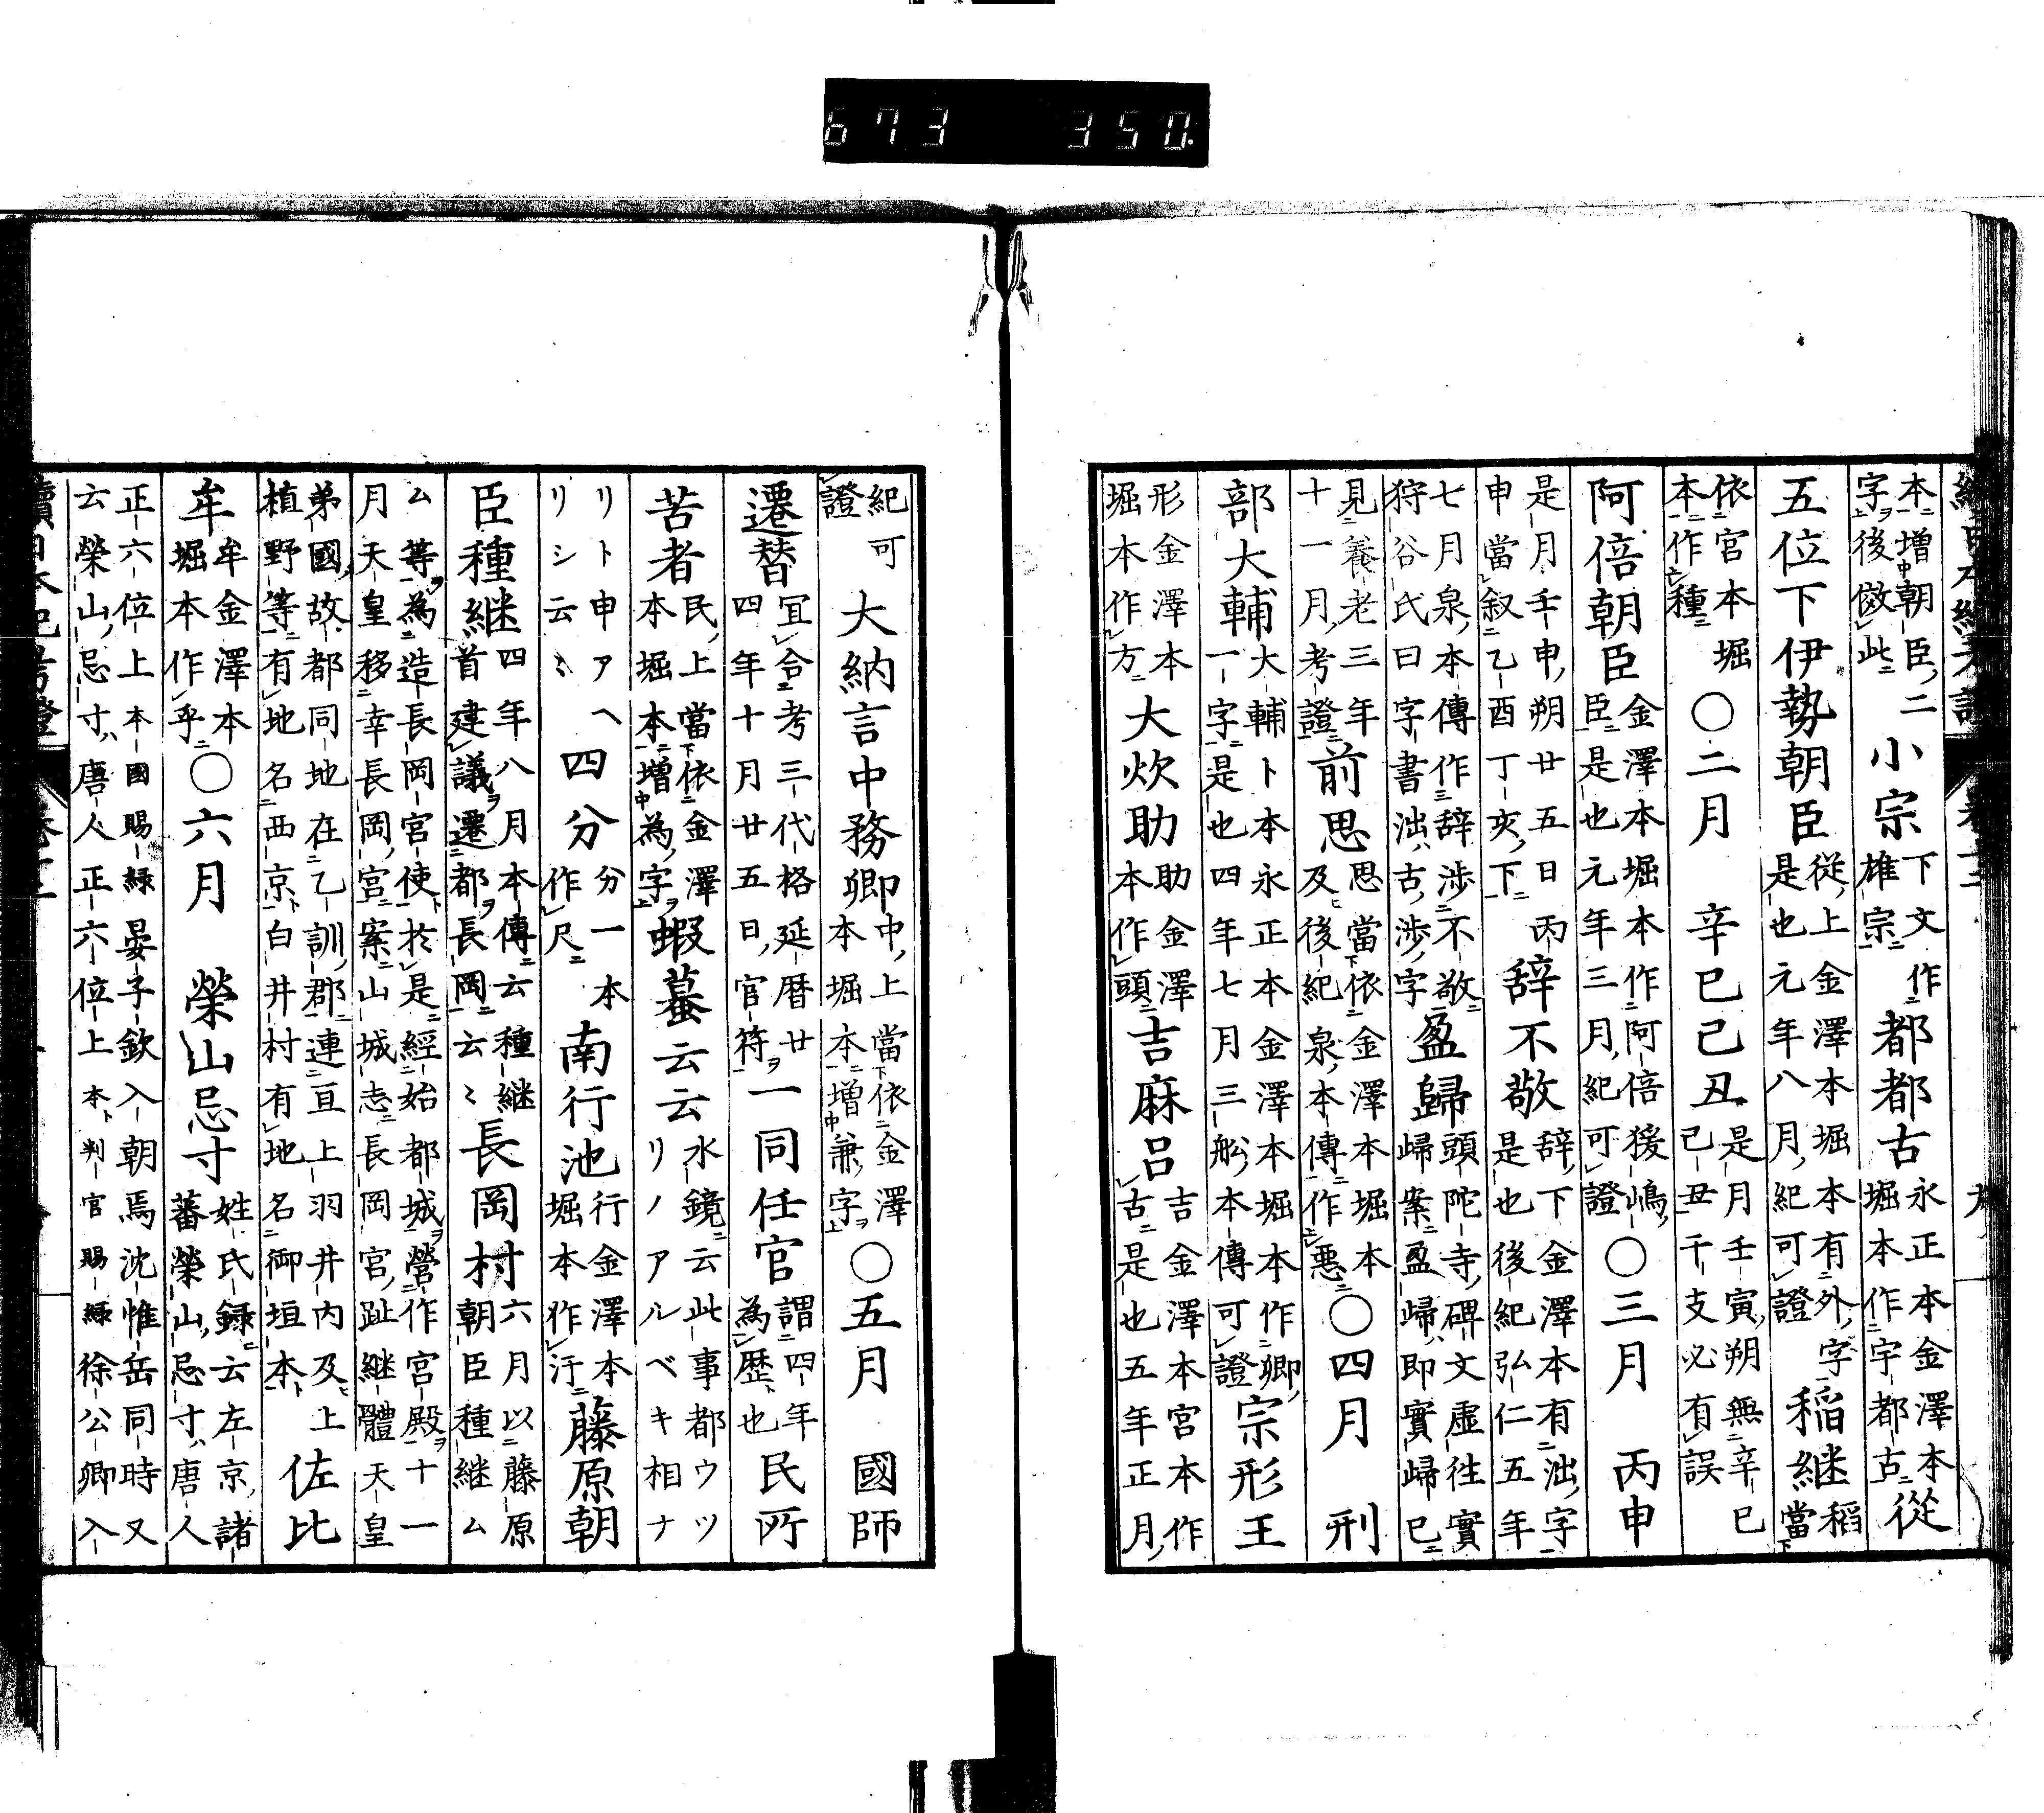 673 350.
本増朝臣二字後倣此 小宗 下文作雄宗 都都古 永正本金澤本堀本作宇都古 從
五位下伊勢朝臣 從上金澤本堀本有外字是也元年八月紀可證 稲継 稻當
依官本堀本作種 ○二月 辛巳己丑 是月壬寅朔無辛巳己丑干支必有誤
阿倍朝臣 金澤本堀本作阿倍猨嶋臣是也元年三月紀可證 ○三月 丙申
是月壬申朔廿五日丙申當叙乙酉丁亥下 辞不敬 辞下金澤本有泏字是也後紀弘仁五年
七月泉本傳作辞渉不敬狩谷氏曰字書泏古渉字 盈歸 頭陀寺碑文虚往實歸案盈歸即實歸已
見養老三年十一月考證 前思 思當依金澤本堀本及後紀泉本傳作惡 ○四月 刑
部大輔 大輔卜本永正本金澤本堀本作卿一字是也四年七月三舩本傳可證 宗形王
形金澤本堀本作方 大炊助 助金澤本作頭 吉麻呂 吉金澤本宮本作古是也五年正月
紀可證 大納言中務卿 中上當依金澤本堀本増兼字 ○五月 國師
遷替 冝合考三代格延暦廿四年十月廿五日官符 一同任官 謂四年為歴也 民所
苦者 民上當依金澤本堀本増為字 蝦蟇云云 水鏡云此事都ウツリノアルベキ相ナ
リト申アヘリシ云〻 四分 分一本作尺 南行池 行金澤本堀本作汙 藤原朝
臣種継 四年八月本傳云種継首建議遷都長岡云〻 長岡村 六月以藤原朝臣種継ム
ム等為造長岡宮使於是經始都城營作宮殿十一月天皇移幸長岡宮案山城志長岡宮趾継體天皇
弟國故都同地在乙訓郡連亘上羽井内及上植野等有地名西京白井村有地名御垣本 佐比
牟 牟金澤本堀本作乎 ○六月 榮山忌寸 姓氏録云左京諸蕃榮山忌寸唐人
正六位上本國賜緑晏子欽入朝焉沈惟岳同時又云榮山忌寸唐人正六位上本判官賜緑徐公卿入